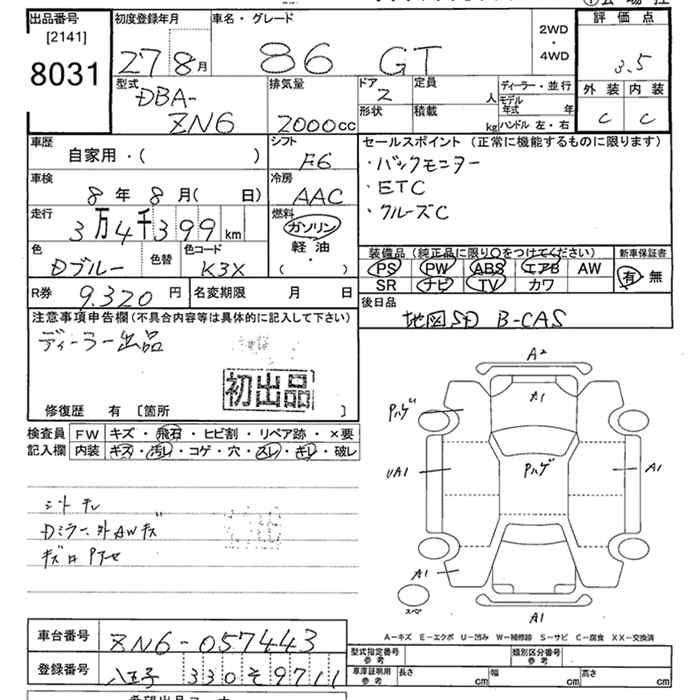 出品番号 [2141] 8031
初度登録年月 27 8月
車名・グレード 86 GT
2WD・4WD
評価点 3.5
外装 内装
C C
型式 DBA-ZN6
排気量 2000cc
ドア 2
形状
定員 人
積載 kg
ディーラー・並行
モデル年式 年
ハンドル 左・右
車歴 自家用・( )
シフト F6
車検 8年8月( 日)
冷房 AAC
走行 3万4千399km
燃料 ガソリン 軽油 ( ・ )
色 Dブルー
色替
色コード K3X
R券 9.320円
名変期限 月 日
セールスポイント(正常に機能するものに限ります)
・バックモニター
・ETC
・クルーズC
装備品(純正品に限り○をつけてください)
PS PW ABS エアB AW
SR ナビ TV カワ
新車保証書 有・無
後日品
地図SD B-CAS
注意事項申告欄(不具合内容等は具体的に記入して下さい)
ディーラー出品
初出品
修復歴 有 [箇所 ]
検査員記入欄
FW キズ・飛石・ヒビ割・リペア跡・×要
内装 キズ・汚レ・コゲ・穴・スレ・キレ・破レ
シートテレ
Dミラー、外AWキズ
A2
A1
Pハゲ
UA1
Pハゲ
A1
A1
スペア
A1
A−キズ E−エクボ U−凹み W−補修跡 S−サビ C−腐食 XX−交換済
車台番号 ZN6-057443
登録番号 八王子 330 そ 9711
型式指定番号 参考
類別区分番号 参考
車庫証明用 参考 長さ cm 幅 cm 高さ cm